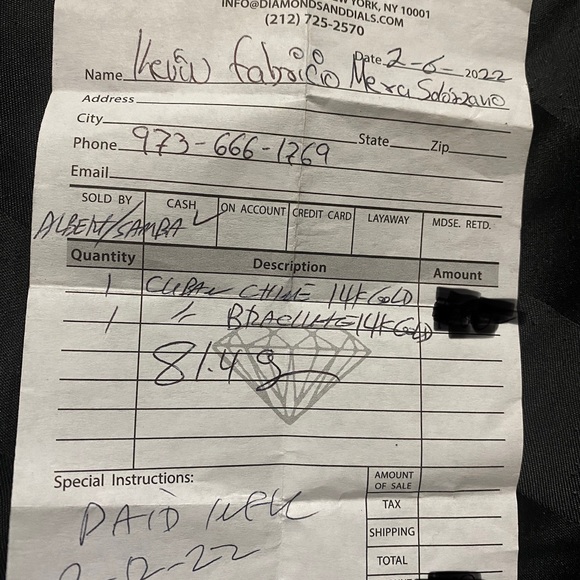 YORK, NY 10001
INFO@DIAMONDSANDDIALS.COM
(212) 725-2570
Date 2-6-2022
Name Kevin Fabricio Mera Solorzano
Address
City State Zip
Phone 973-666-1769
Email
SOLD BY CASH ON ACCOUNT CREDIT CARD LAYAWAY MDSE. RETD.
ALBERT/SAMBA ✓
Quantity Description Amount
1 CUBAN CHINE 14K GOLD
1 〃 BRACLITE 14K GOLD
81.4 g
Special Instructions:
AMOUNT OF SALE
TAX
PAID
SHIPPING
TOTAL